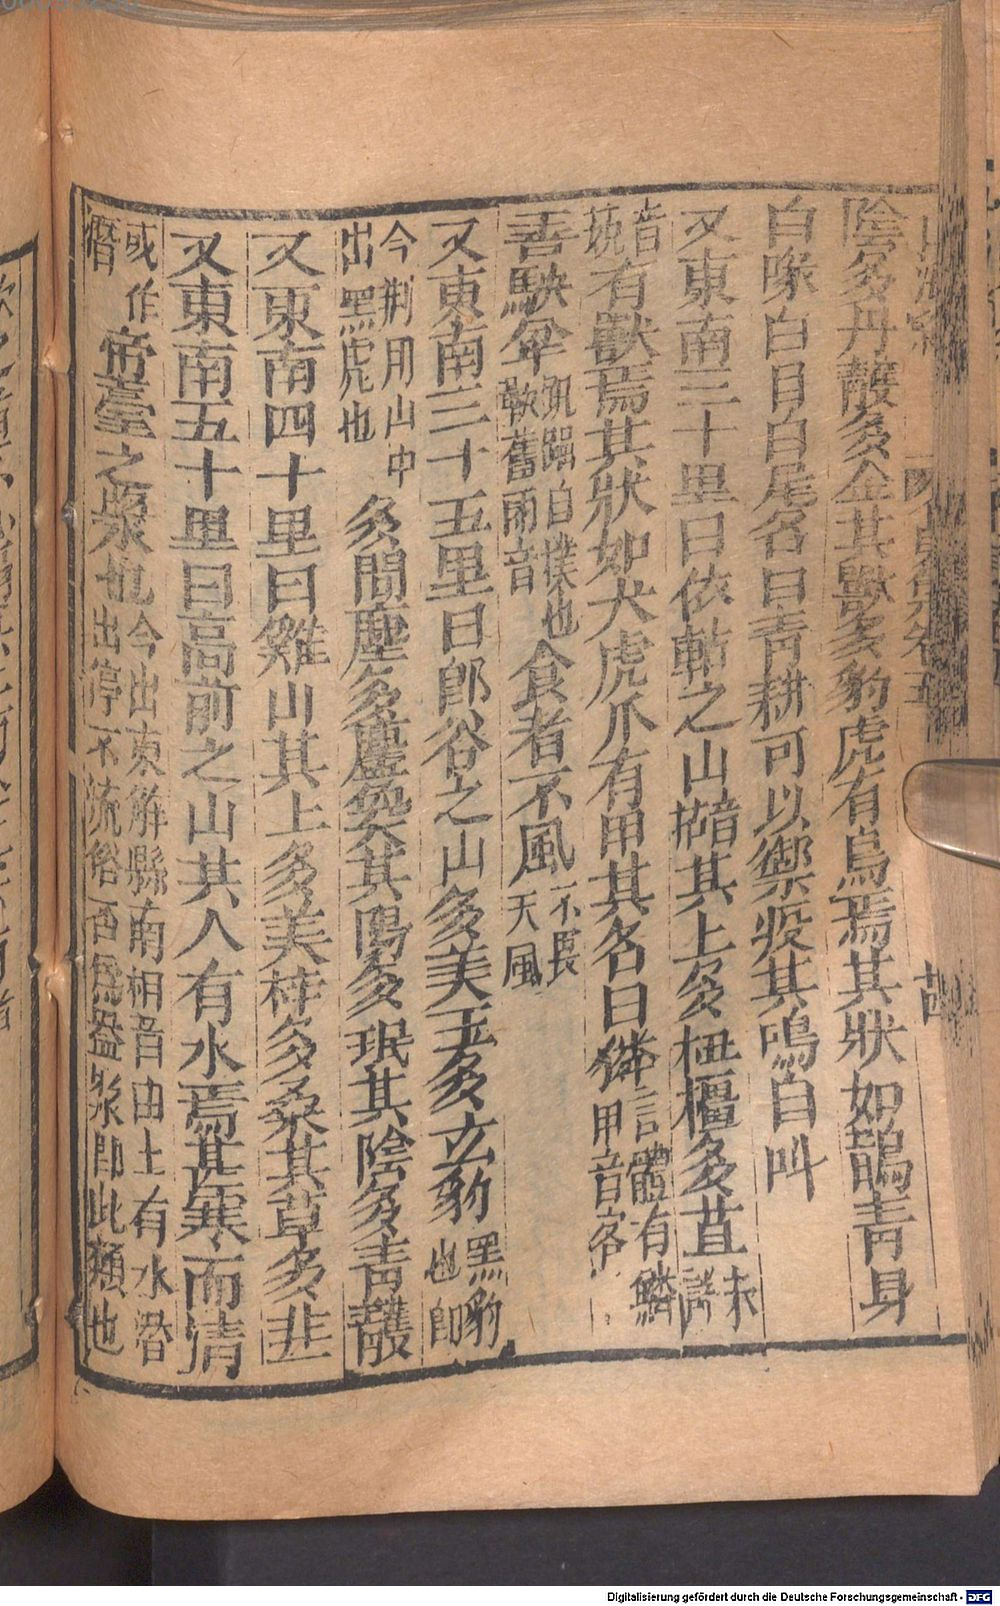 陰多丹雘多金其獸多豹虎有鳥焉其狀如鵲青身
白喙白目白尾名曰青耕可以禦疫其鳴自叫
又東南三十里曰依軲之山音枯其上多杻橿多苴未詳
音疏有獸焉其狀如犬虎爪有甲其名曰獜言體有鱗甲音吝
善駚坌跳躍自撲也鞅奮兩音食者不風不畏天風
又東南三十五里曰卽谷之山多美玉多玄豹黑豹也卽
今荆州山中出黑虎也多閭麈多麢㚟其陽多珉其陰多青雘
又東南四十里曰雞山其上多美梓多桑其草多韭
又東南五十里曰高前之山其人有水焉甚寒而清
或作潛帝臺之漿也今出東解縣南相音由上有水潛出停不流俗名爲盎漿卽此類也
Digitalisierung gefördert durch die Deutsche Forschungsgemeinschaft - DFG